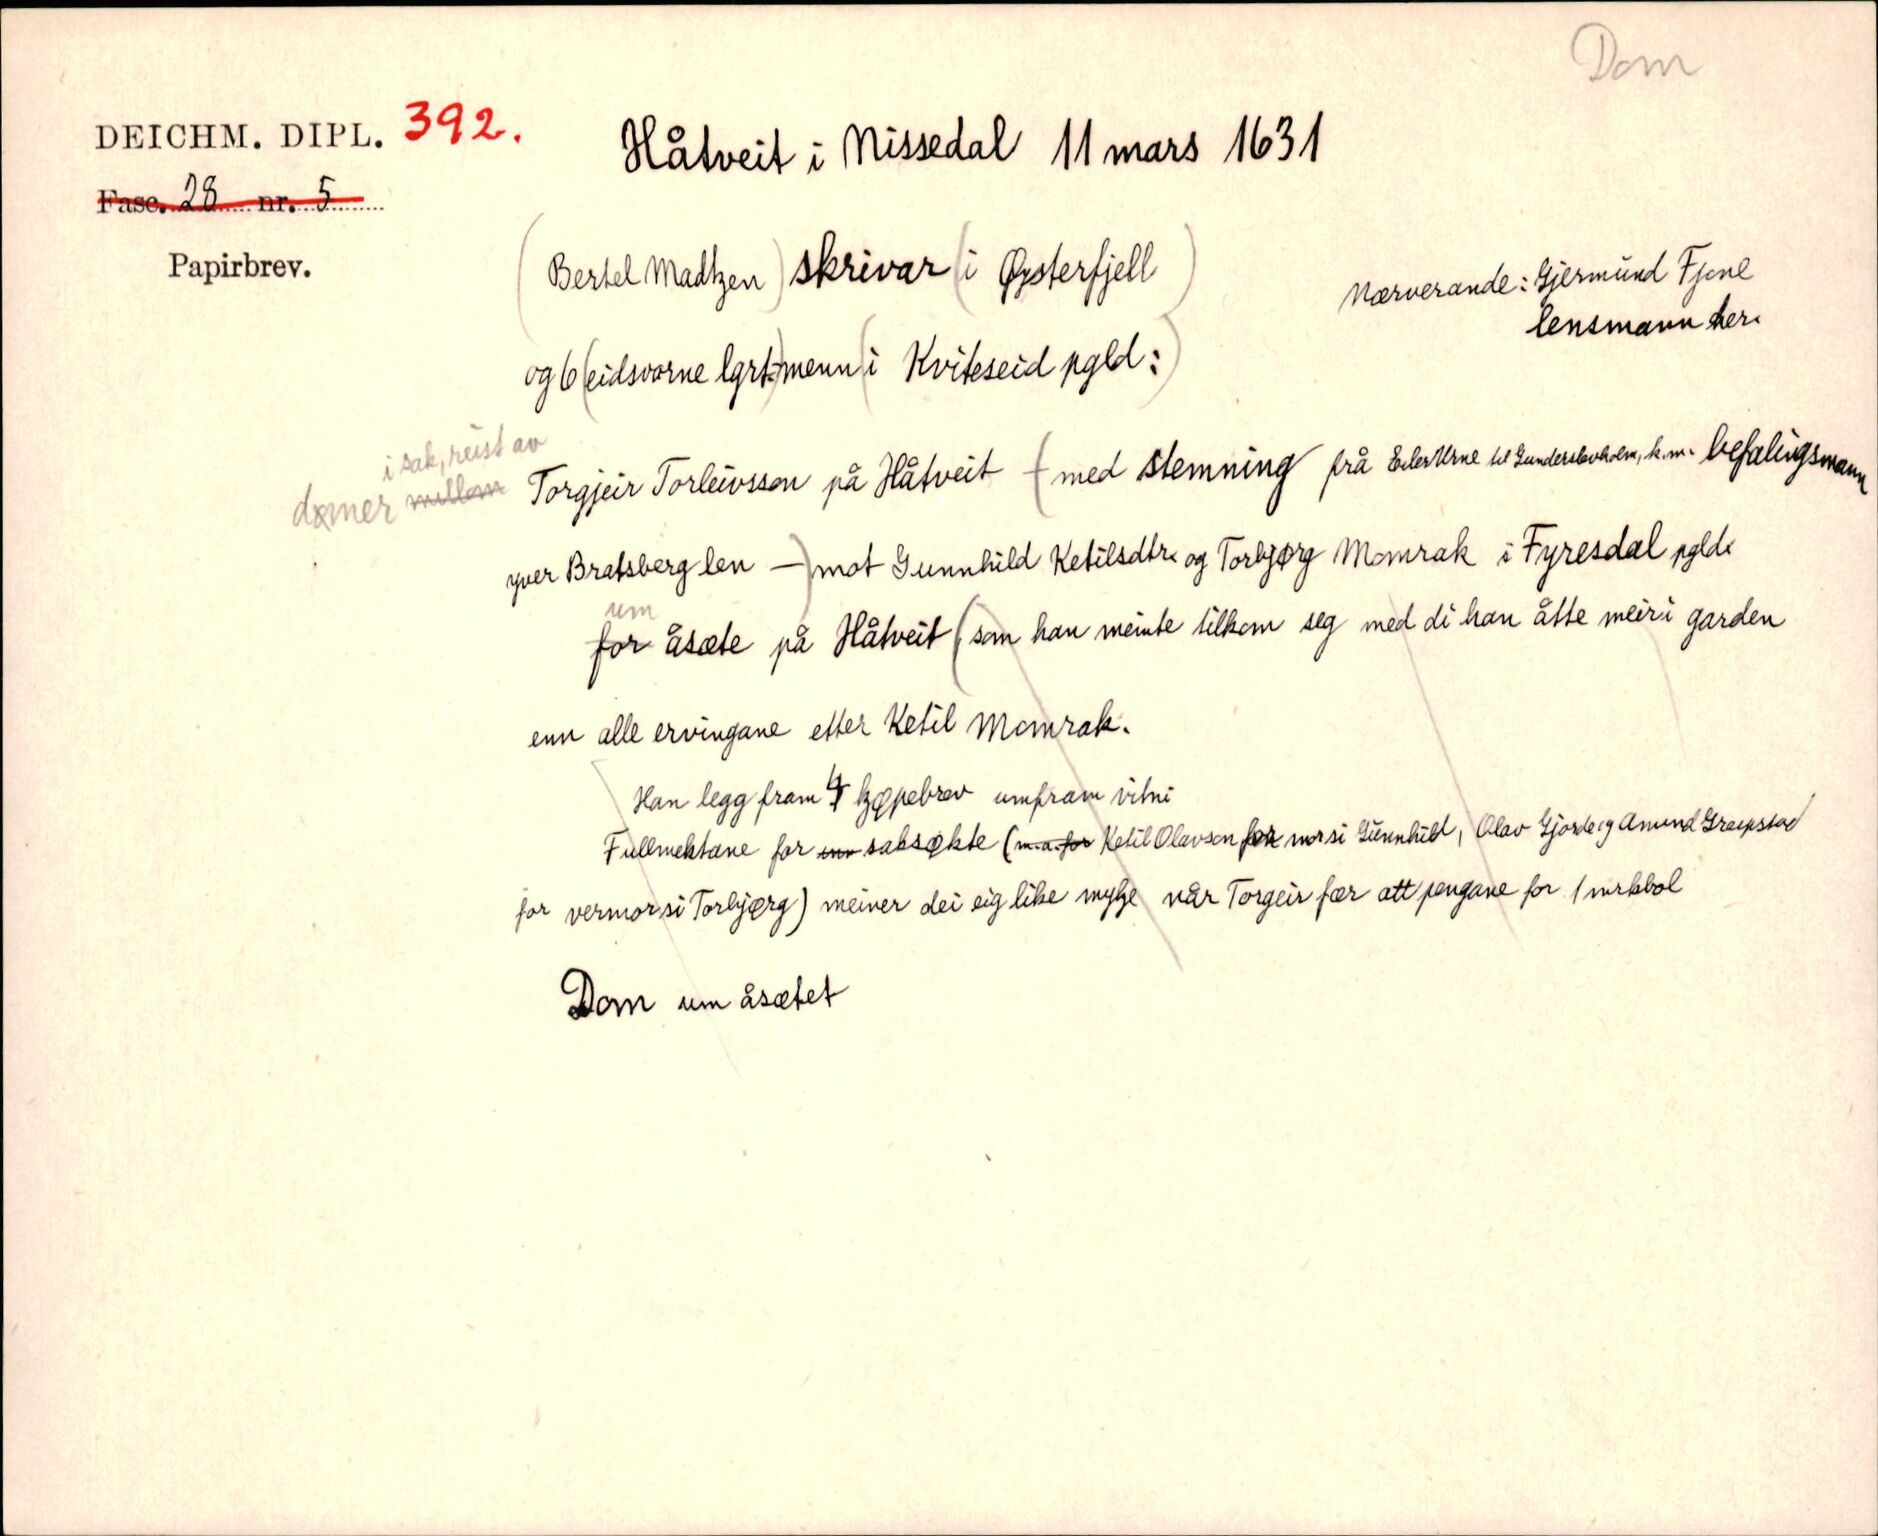 Dom
DEICHM. DIPL. 392.
Håtveit i Nissedal 11 mars 1631
Fasc. 28 nr. 5
Papirbrev.
(Bertel Madtzen) skrivar (i Øysterfjell)
Nærverande: Gjermund Fjone
lensmann her.
og 6 (eidsvorne lgrt.) menn (i Kviteseid pgld:)
i sak, reist av
dømer millom Torgjeir Torleivsson på Håtveit (med stemning frå Eiler Urne til Gunderslevholm, k.m. befalingsmann
yver Bratsberg len —) mot Gunnhild Ketilsdtr. og Torbjørg Momrak i Fyresdal pgld.
um
for åsæte på Håtveit (som han meinte tilkom seg med di han åtte meir i garden
enn alle ervingane etter Ketil Momrak.
Han legg fram 4 kjøpebrev umfram vitni
Fullmektane for saksøkte (m.a. for Ketil Olavson for mor si Gunnhild, Olav Gjorde og Amund Graupstad
for vermor si Torbjørg) meiner dei eig like mykje når Torgeir fær att pengane for 1 mrkbol
Dom um åsætet